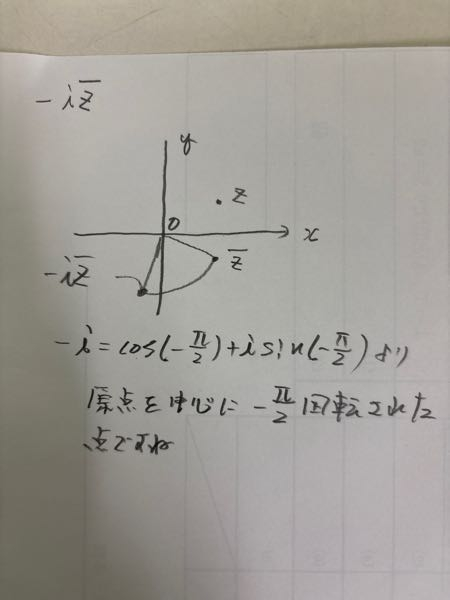 -i\overline{z}
y
z
0
x
\overline{z}
-i\overline{z}
-i = cos(-π/2) + i sin(-π/2) より
原点を中心に -π/2 回転された
点ですね